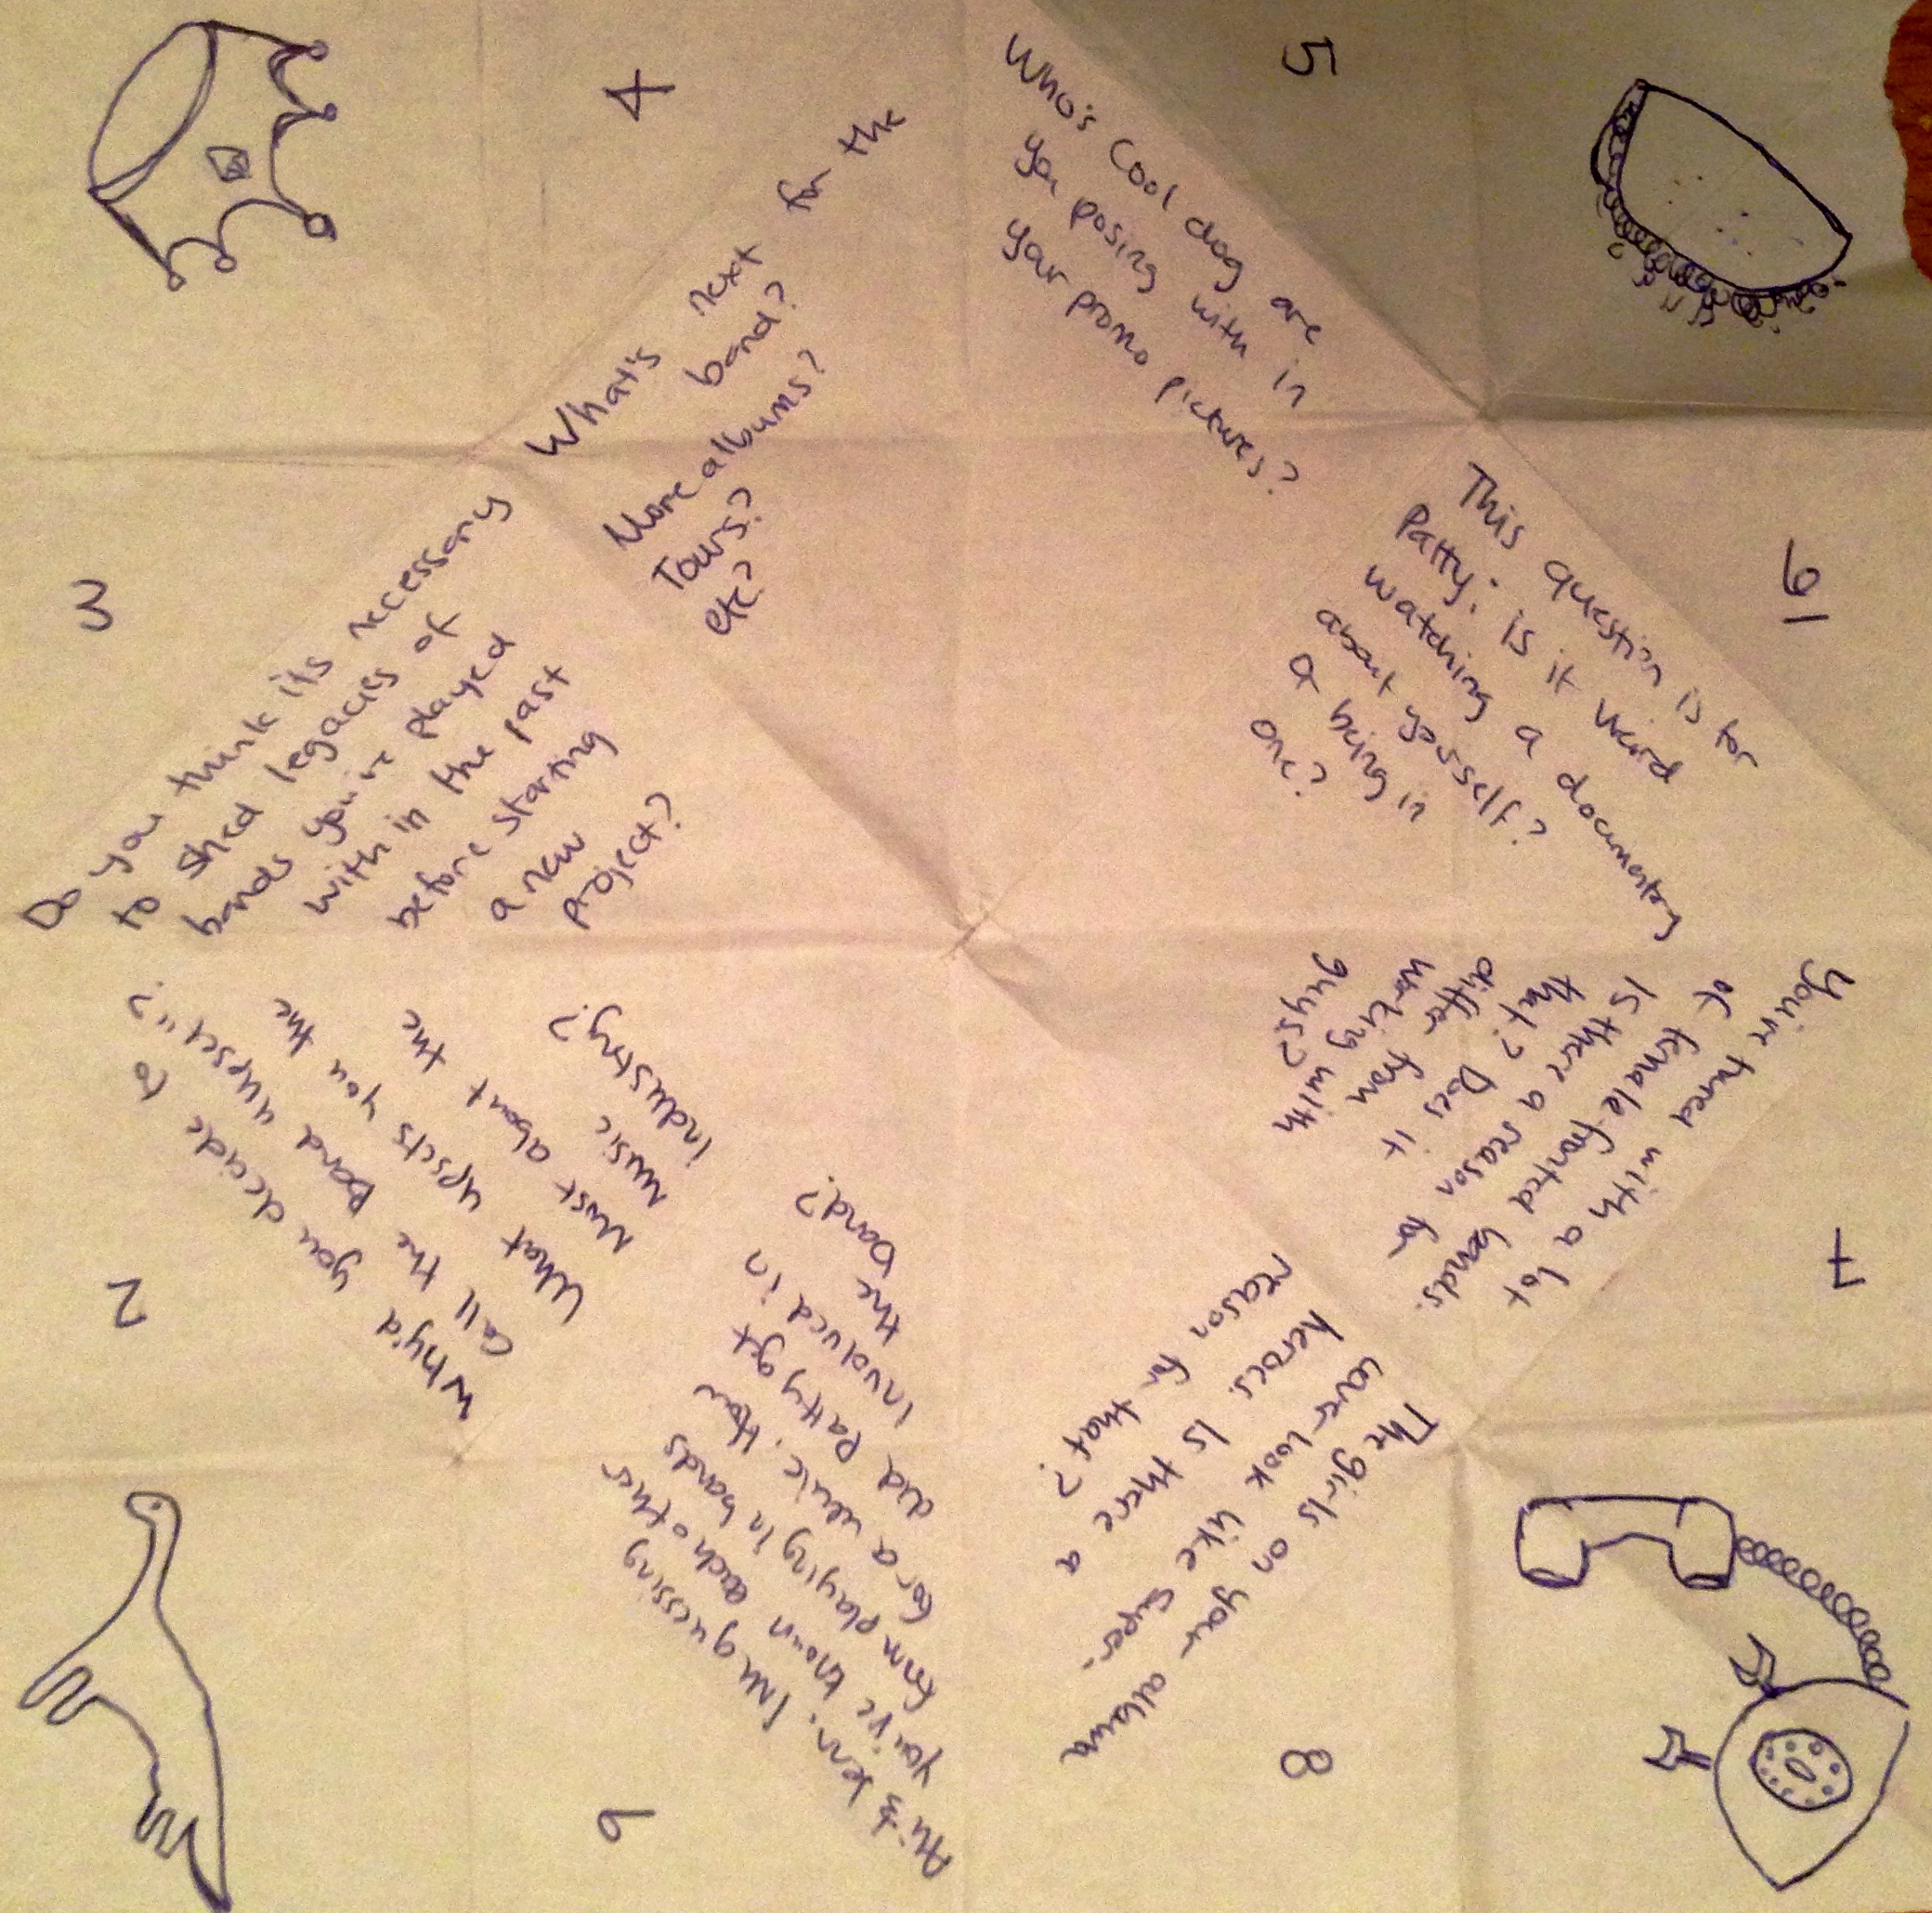 2
Why'd you decide to
call the band "upset"?
What upsets you the
most about the
music
industry?
3
Do you think its necessary
to shed legacies of
bands you've played
with in the past
before starting
a new
project?
4
What's next for the
band?
More albums?
Tours?
etc?
5
Who's cool dog are
you posing with in
your promo pictures?
6
This question is for
Patty; is it weird
watching a documentary
about yourself?
Or being in
one?
7
You've toured with a lot
of female fronted bands.
Is there a reason for
that? Does it
differ from
working with
guys?
8
The girls on your album
cover look like super-
heroes. Is there a
reason for that?
9
Ali & Jenn, I'm guessing
you've known each other
from playing in bands
for a while. How
did Patty get
involved in
the
band?